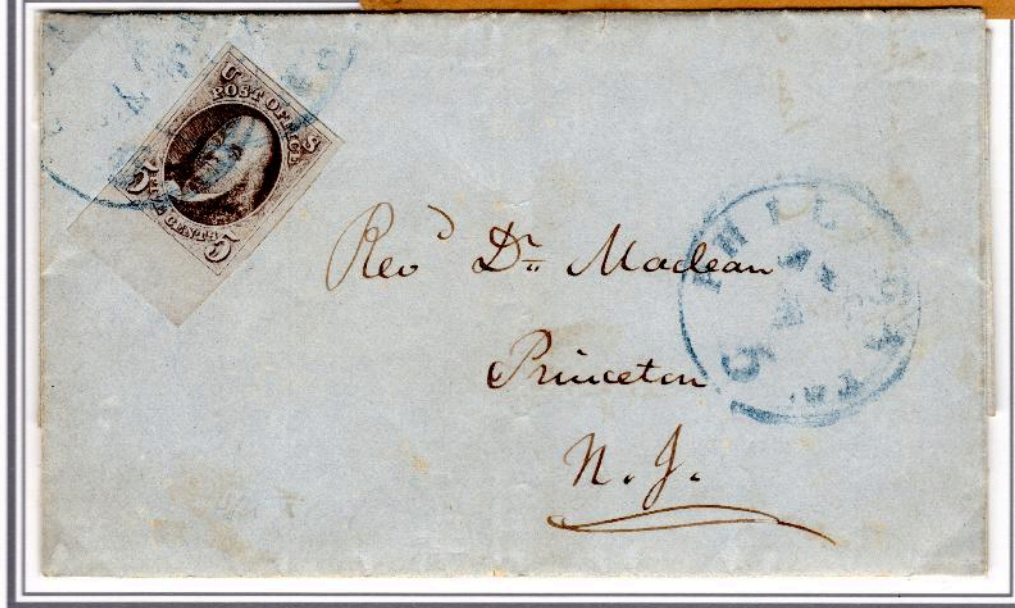 U S
POST OFFICE
5 FIVE CENTS 5
Rev^d D^r. Maclean
Princeton
N. J.
PHIL
5